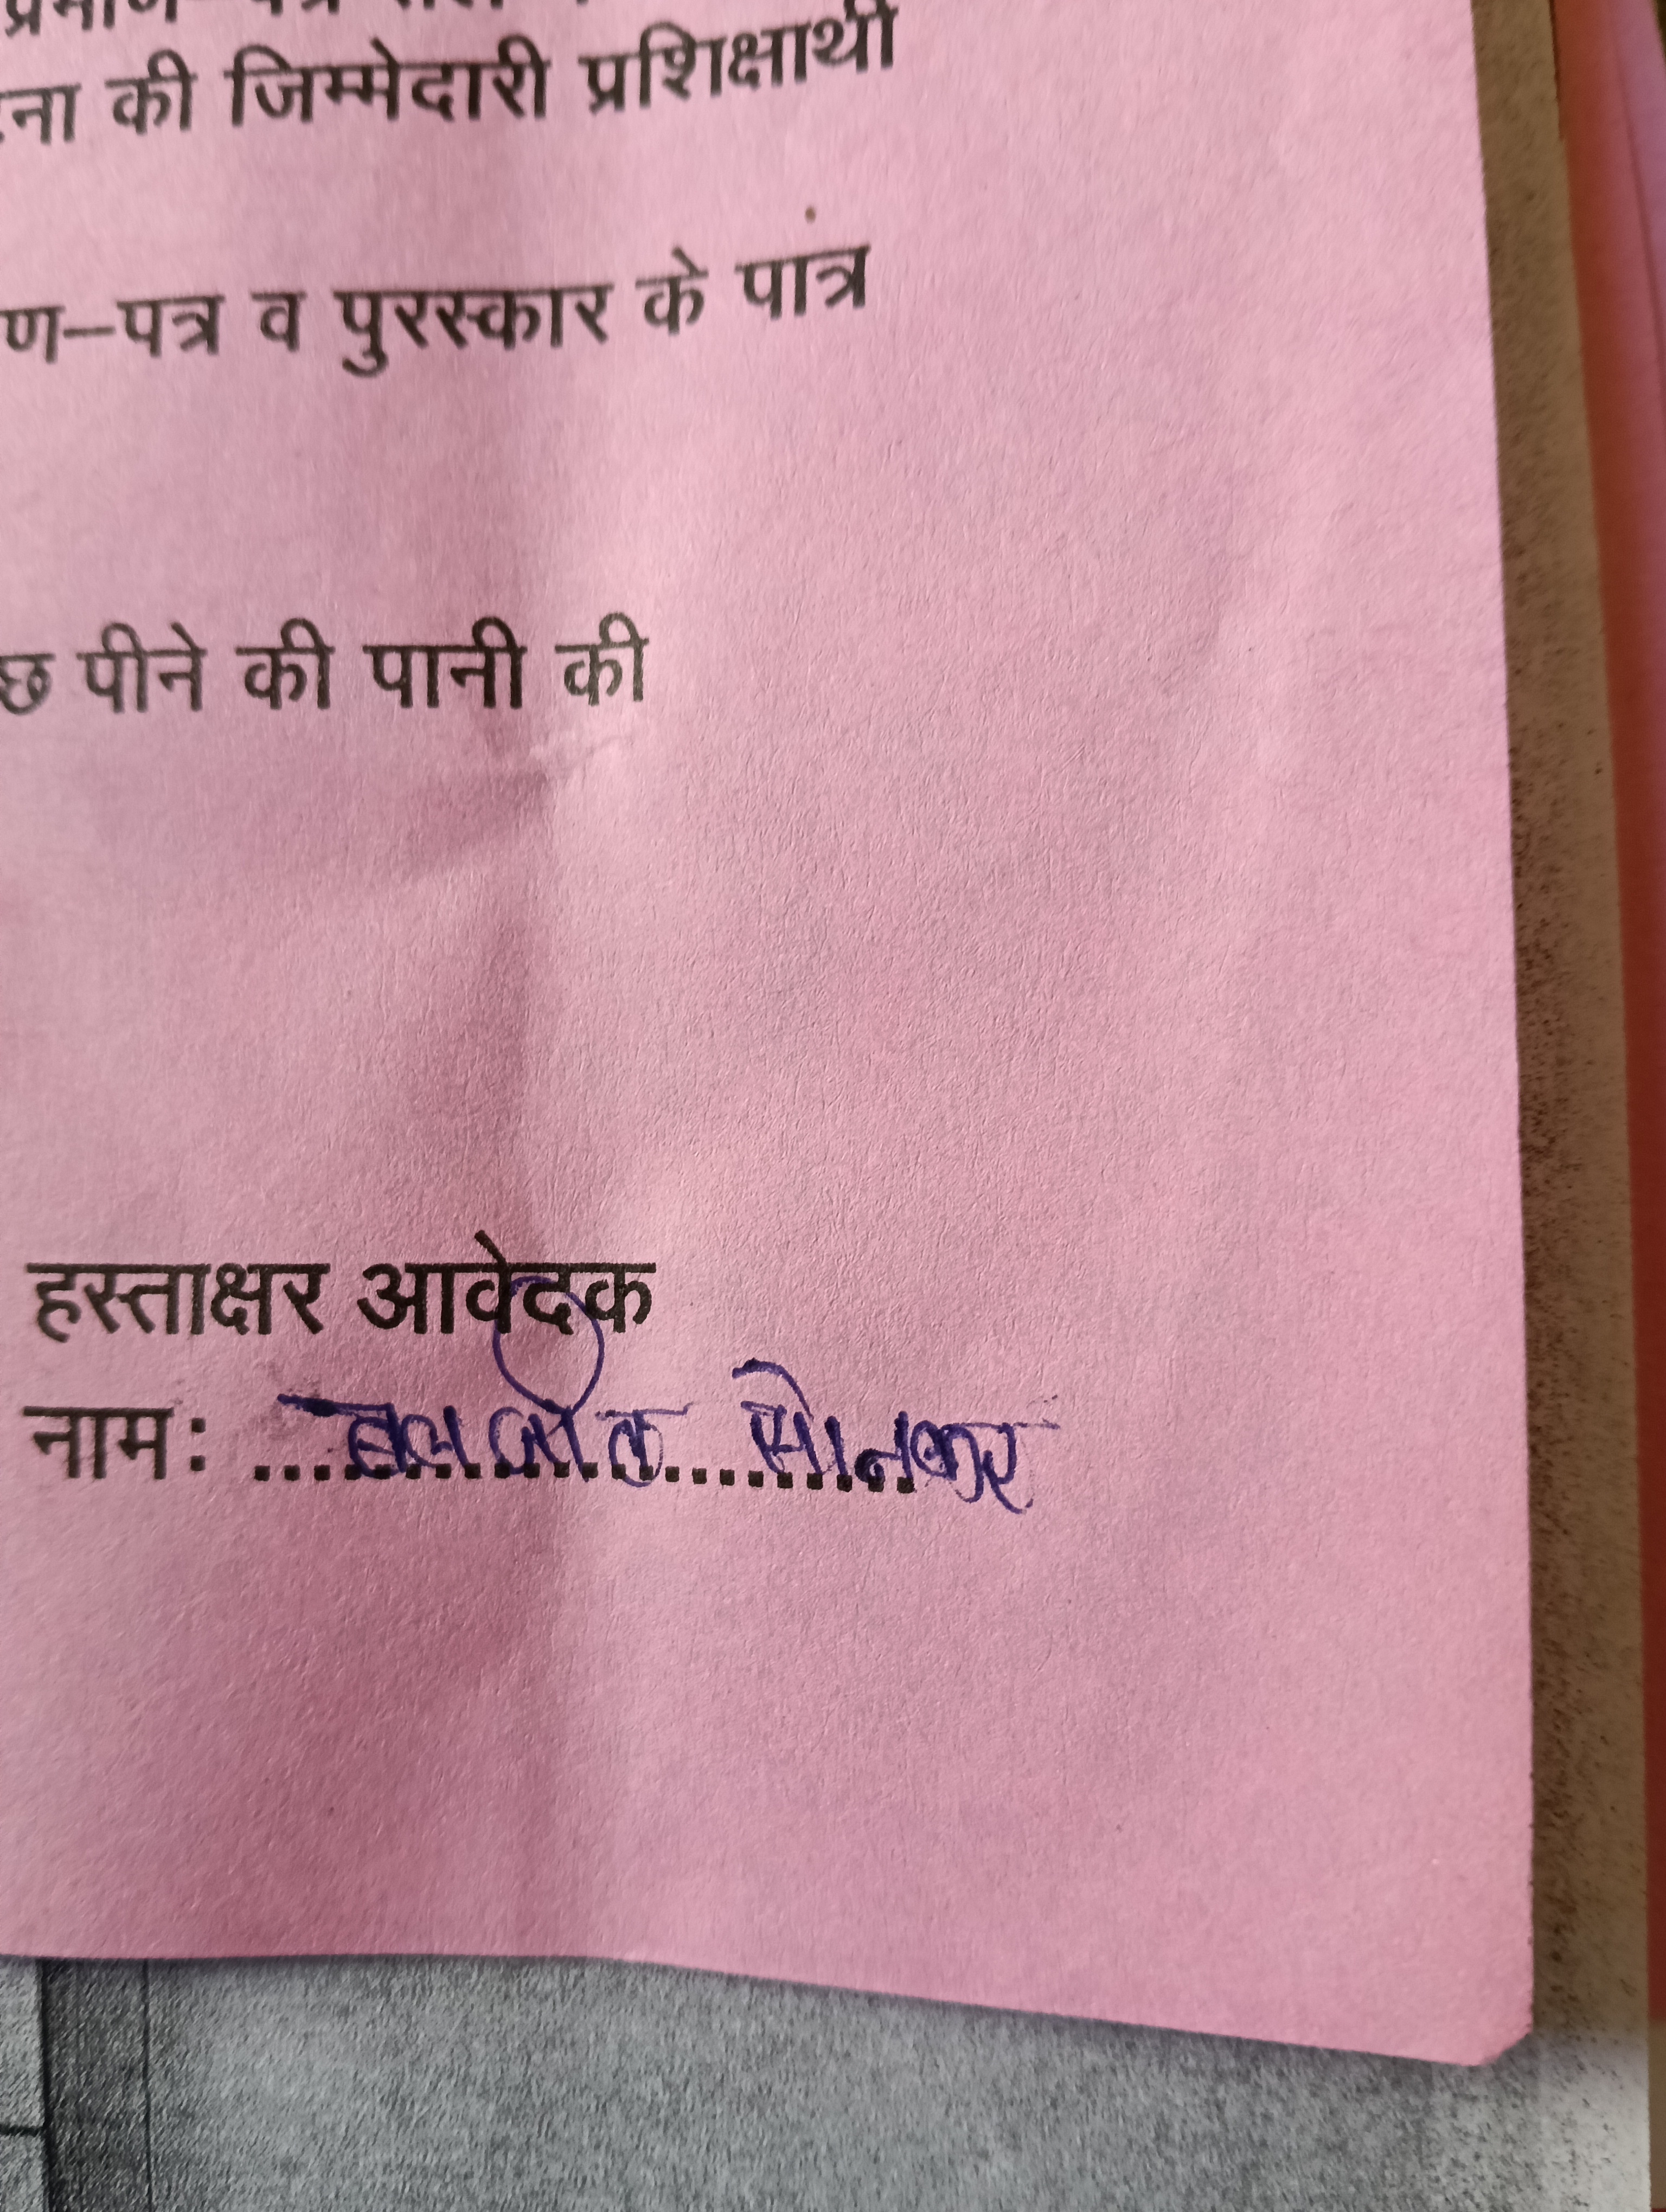 प्रमाण–पत्र
ना की जिम्मेदारी प्रशिक्षार्थी
ण–पत्र व पुरस्कार के पात्र
छ पीने की पानी की
हस्ताक्षर आवेदक
नाम: ...बलजीत सोनकर